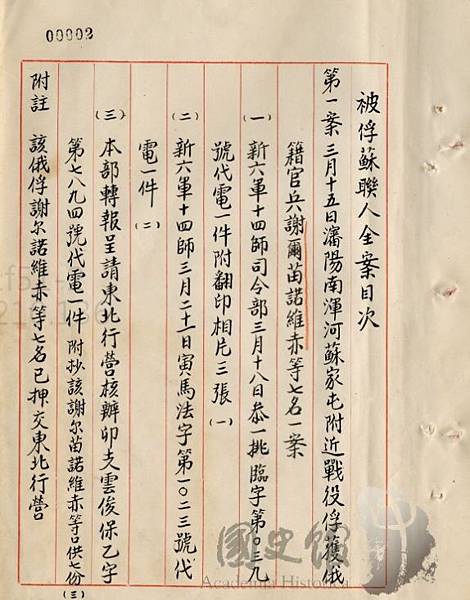 00002
被俘蘇聯人全案目次
第一案 三月十五日瀋陽南渾河蘇家屯附近戰役俘獲俄
籍官兵謝爾苗諾維赤等七名一案
(一) 新六軍十四師司令部三月十八日恭一挑臨字第〇三九
號代電一件附翻印相片三張(一)
(二) 新六軍十四師三月二十一日寅馬法字第一〇二三號代
電一件(二)
(三) 本部轉報呈請東北行營核辦卯支雲俊保乙字
第七八九四號代電一件 附抄該謝尔苗諾維赤等口供七份(三)
附註 該俄俘謝尔諾維赤等七名已押交東北行營
國史館
Academia Historica